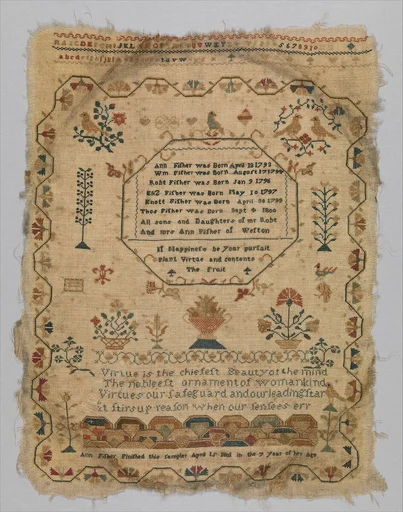 Ann Fisher was Born April 12 1792
Wm Fisher was Born August 17 1794
Robt Fisher was Born Jan 9 1796
was Born May 10 1797
Knott Fisher was Born April 30 1799
Thos Fisher was Born Sept 9 1800
All sons and Daughters of mr Robt
And mrs Ann Fisher of Weston
If Happiness be your pursuit
Plant Virtue and contents
The Fruit
Virtue is the chiefest Beauty of the mind
The nobleest ornament of womankind
Virtues our safeguard and our leading star
it stirs up reason when our sensees err
Ann Fisher Finished this Sampler April 15 in the 9 year of her Age